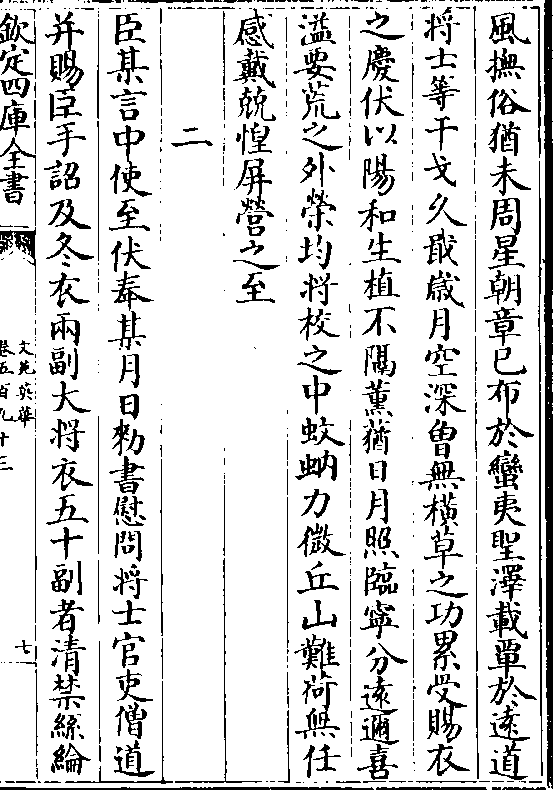 風撫俗猶未周星朝章已布於蠻夷聖澤載覃於遠道
將士等干戈久戢歲月空深曾無橫草之功累受賜衣
之慶伏以陽和生植不隔薰蕕日月照臨寧分遠邇喜
溢要荒之外榮均將校之中蚊蚋力微丘山難荷無任
感戴兢惶屏營之至
二
臣某言中使至伏奉某月日勑書慰問將士官吏僧道
并賜臣手詔及冬衣兩副大將衣五十副者清禁絲綸
欽定四庫全書
文苑英華
卷五百九十三
七